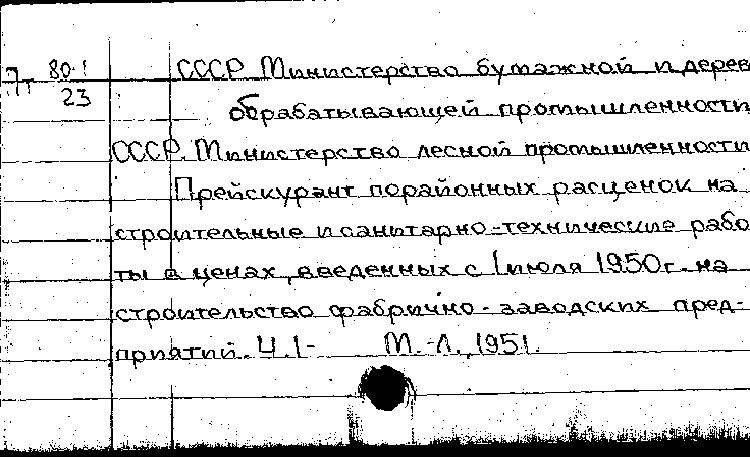 7т 80-1 СССР. Министерство бумажной и дерев
23 обрабатывающей промышленности
СССР. Министерство лесной промышленности
Прейскурант порайонных расценок на
строительные и санитарно-технические рабо
ты в ценах, введенных с 1 июля 1950г. на
строительство фабрично-заводских пред-
приятий. Ч.1- М.-Л., 1951.